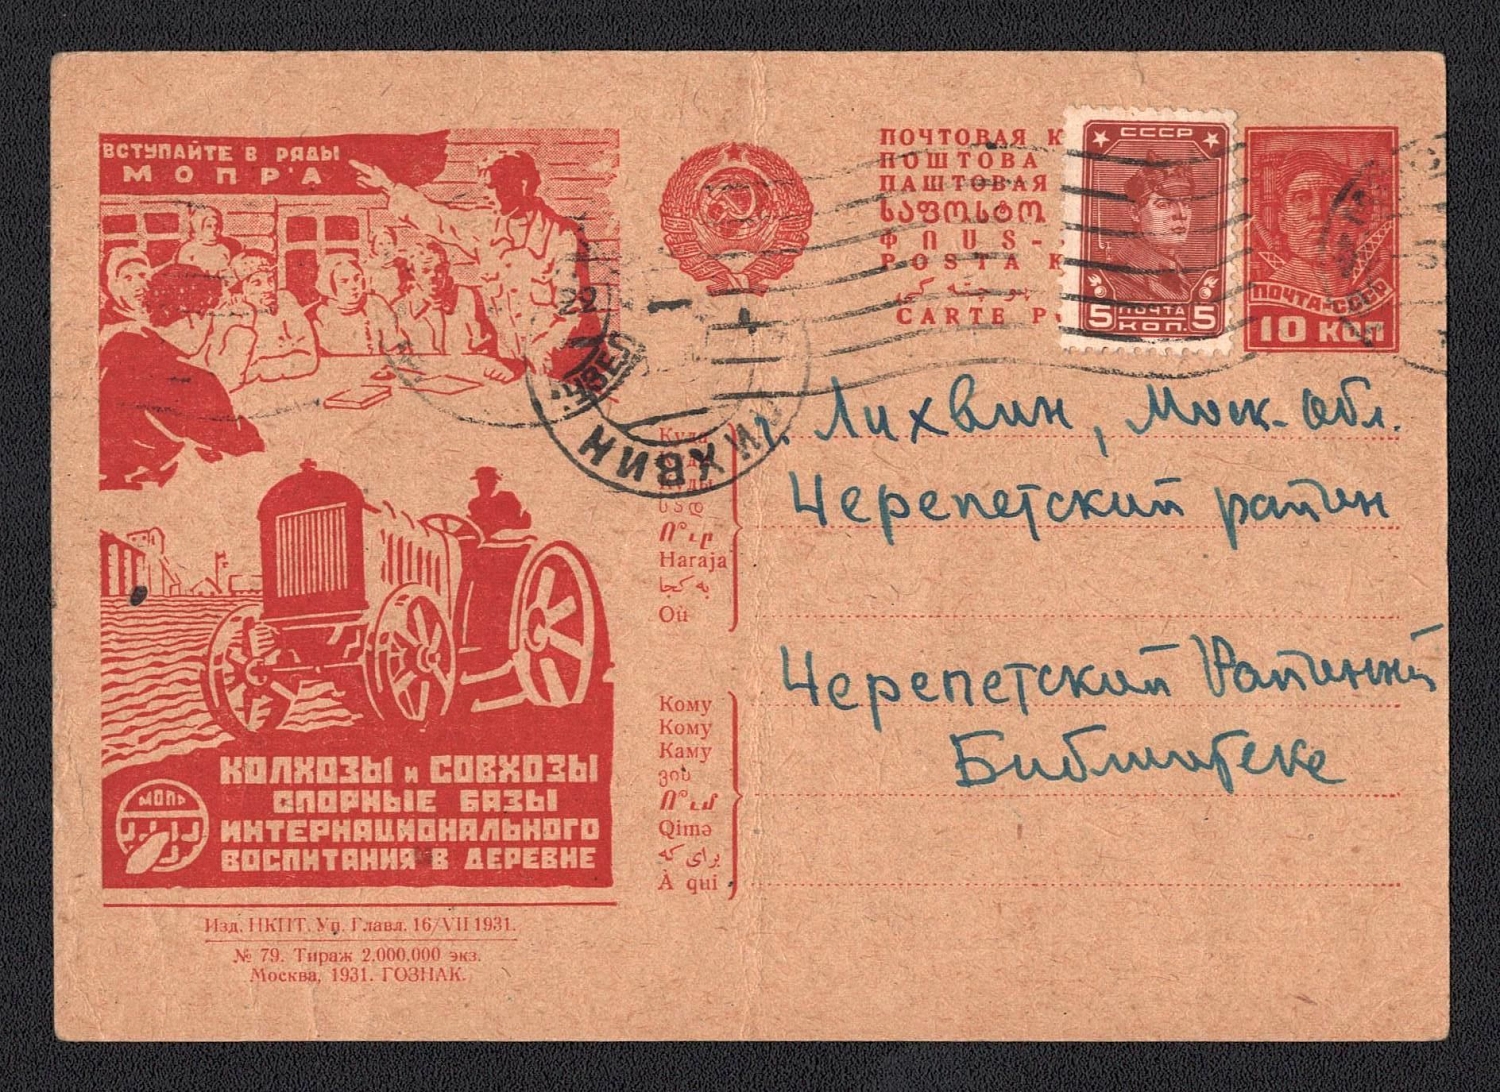 ВСТУПАЙТЕ В РЯДЫ
МОПР'А
КОЛХОЗЫ и СОВХОЗЫ
ОПОРНЫЕ БАЗЫ
ИНТЕРНАЦИОНАЛЬНОГО
ВОСПИТАНИЯ В ДЕРЕВНЕ
МОПР
Изд. НКПТ. Уп. Главл. 16/VII 1931.
№ 79. Тираж 2.000.000 экз.
Москва, 1931. ГОЗНАК.
ПОЧТОВАЯ К
ПОШТОВА
ПАШТОВАЯ
ՓՈՍՏ-
POSTA K
CARTE P
СССР
5 ПОЧТА 5
КОП.
ПОЧТА-СССР
10 КОП
22
ЛИХВИН
УЗЕЛ
Куда
Куды
სად
Ո՞ւր
Haraja
به کجا
Où
г. Лихвин, Моск. обл.
Черепетский район
Кому
Кому
Каму
ვის
Ո՞ւմ
Qimə
برای که
À qui
Черепетский Районный
Библиотеке